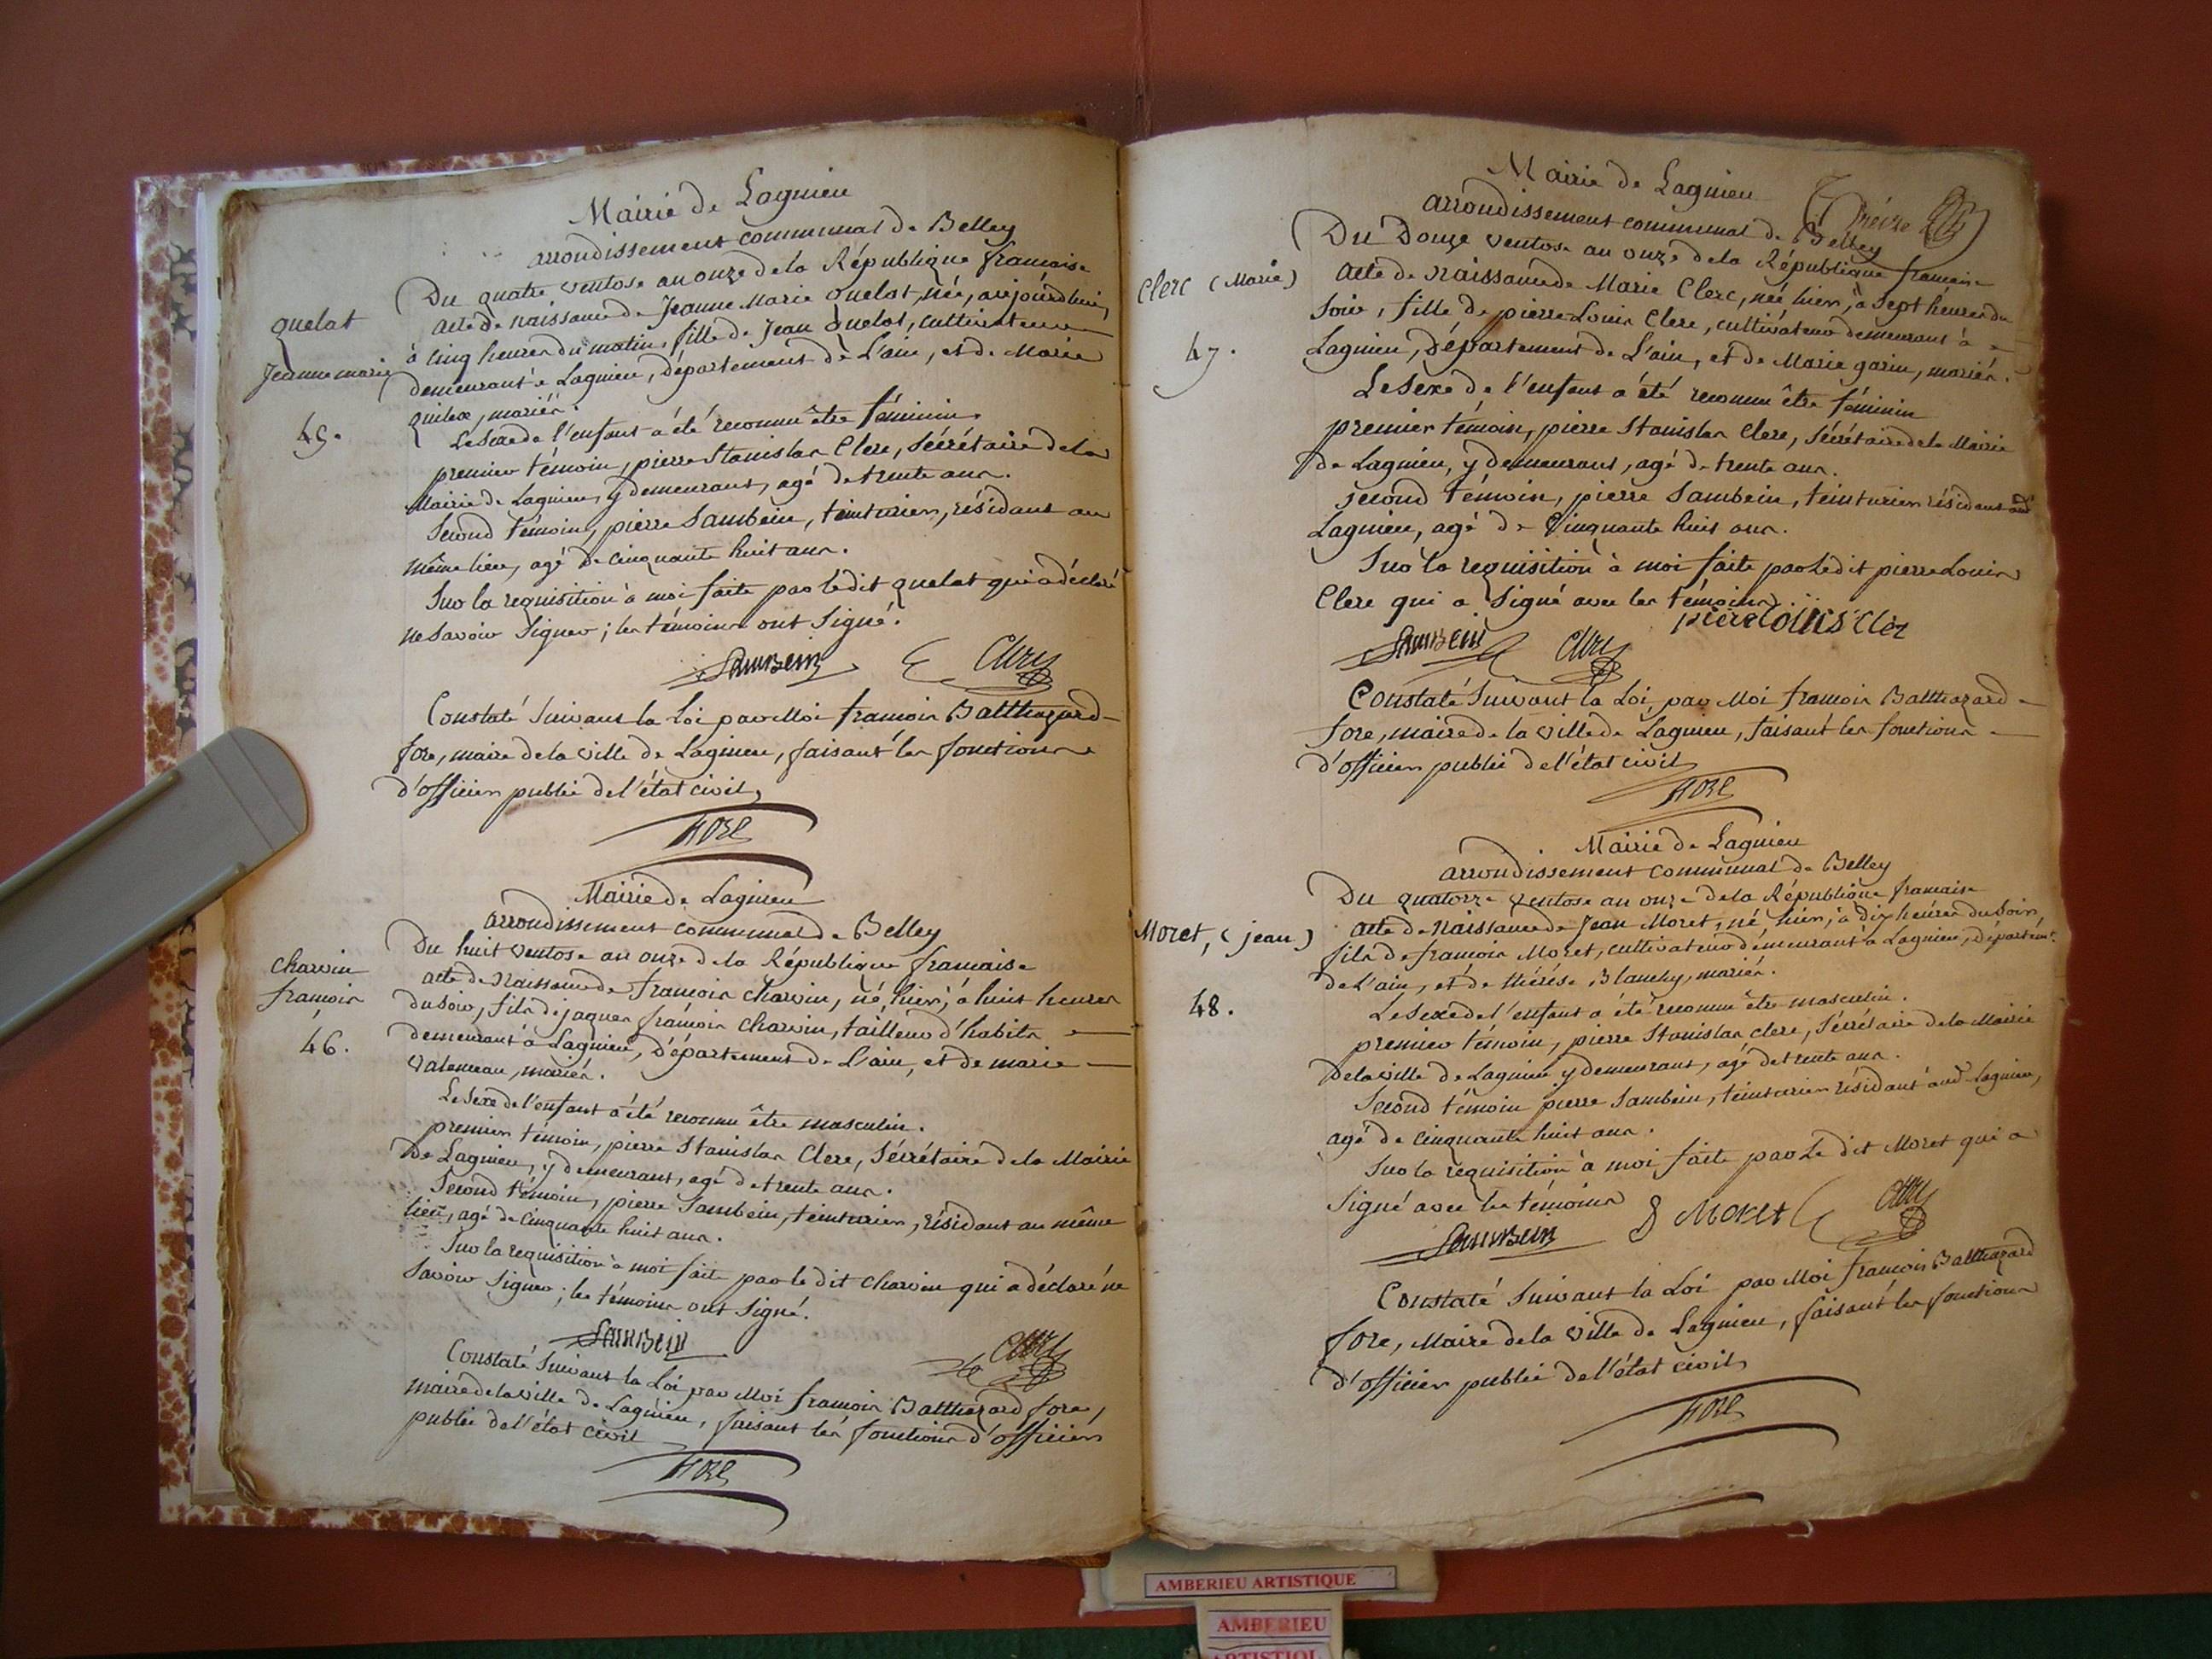 Mairie de Lagnieu
arrondissement communal de Belley
Du quatre ventose an onze de la République francaise
quelat
Jeanne marie
45.
acte de naissance de Jeanne Marie quelat, née, aujourd'hui,
à cinq heures du matin, fille de Jean quelat, cultivateur
demeurant à Lagnieu, département de L'ain, et de Marie
mariés.
Le Sexe de l'enfant a été reconnu être féminin.
premier témoin, pierre Stanislas Clerc, Sécrétaire de la
Mairie de Lagnieu, y demeurant, agé de trente ans.
Second témoin, pierre Sambein, teinturier, résidant au
même lieu, agé de cinquante huit ans.
Sur la requisition à moi faite par le dit quelat qui a déclaré
ne Savoir Signer; les témoins ont Signé.
Sambein Clerc
Constaté Suivant la Loi par Moi francois Balthazard
fore, maire de la ville de Lagnieu, faisant les fonctions
d'officier public de l'état civil,
FORE
Mairie de Lagnieu
arrondissement communal de Belley
Du huit ventose an onze de la République francaise
charvin
francois
46.
acte de Naissance de francois charvin, né, hier, à huit heures
du Soir, fils de jaques francois charvin, tailleur d'habits
demeurant à Lagnieu, Département de L'ain, et de marie
mariés.
Le Sexe de l'enfant a été reconnu être masculin.
premier témoin, pierre Stanislas Clerc, Sécrétaire de la Mairie
De Lagnieu, y demeurant, agé de trente ans.
Second témoin, pierre Sambein, teinturier, résidant au même
lieu, agé de cinquante huit ans.
Sur la requisition à moi faite par le dit charvin qui a déclaré ne
Savoir Signer; les témoins ont Signé.
Sambein Clerc
Constaté Suivant la Loi par Moi francois Balthazard fore,
maire de la ville de Lagnieu, faisant les fonctions d'officier
public de l'état civil
FORE
Mairie de Lagnieu
arrondissement communal de Belley
Du Douze ventose an onze de la République francaise
Clerc (Marie)
47.
acte de Naissance de Marie Clerc, née hier, à Sept heures du
Soir, fille de pierre Louis Clerc, cultivateur demeurant à
Lagnieu, Département de L'ain, et de Marie garin, mariés.
Le Sexe de l'enfant a été reconnu être féminin
premier témoin, pierre Stanislas Clerc, Sécrétaire de la Mairie
de Lagnieu, y demeurant, agé de trente ans.
second témoin, pierre Sambein, teinturier résidant aud
Lagnieu, agé de Cinquante huit ans.
Sur la requisition à moi faite par Le dit pierre Louis
Clerc qui a Signé avec les témoins.
piere louis cler
Sambein Clerc
Constaté Suivant la Loi, par Moi francois Balthazard
fore, maire de la ville de Lagnieu, faisant les fonctions
d'officier public de l'état civil
FORE
Mairie de Lagnieu
arrondissement communal de Belley
Du quatorze ventose an onze de la République francaise
Moret, (jean)
48.
acte de Naissance de Jean Moret, né, hier, à dix heures du Soir,
fils de francois Moret, cultivateur demeurant à Lagnieu, Départemt.
de L'ain, et de thérése Blanchy, mariés.
Le Sexe de l'enfant a été reconnu être masculin.
premier témoin, pierre Stanislas clerc, Sécrétaire de la Mairie
De la ville de Lagnieu y demeurant, agé de trente ans.
Second témoin pierre Sambein, teinturier résidant aud Lagnieu,
agé de cinquante huit ans.
Sur la requisition à moi faite par Le dit Moret qui a
Signé avec les témoins
Sambein MoRet Clerc
Constaté Suivant la Loi par Moi francois Balthazard
fore, Maire de la ville de Lagnieu, faisant les fonctions
d'officier public de l'état civil
FORE
AMBERIEU ARTISTIQUE
AMBERIEU